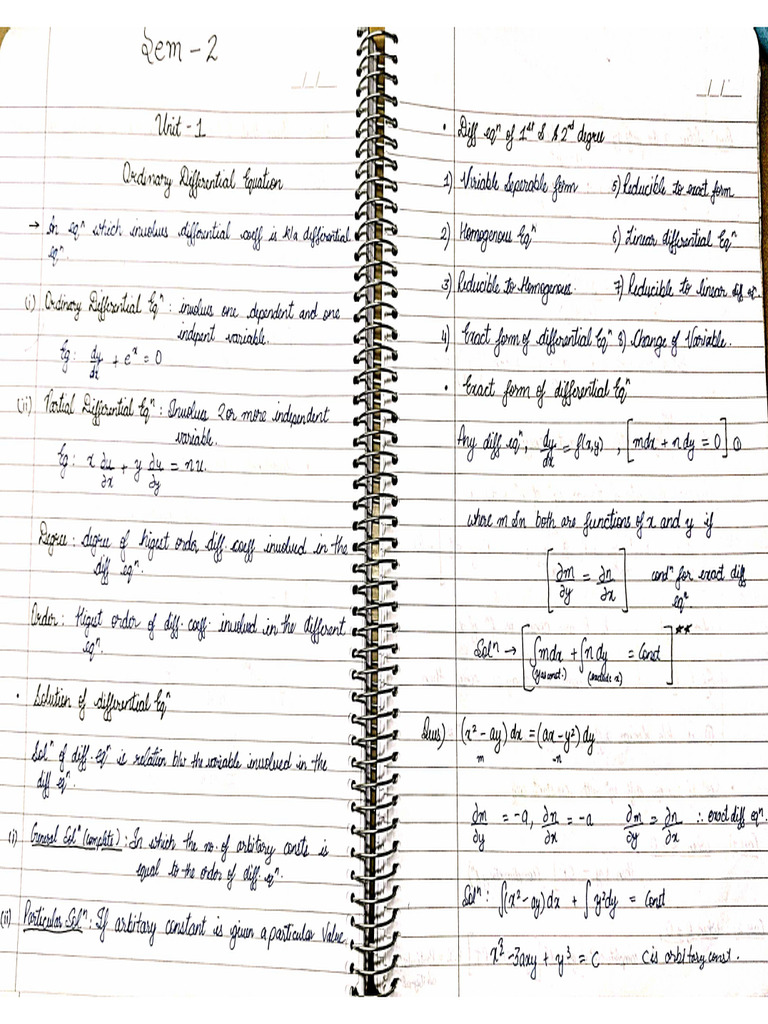 Sem - 2
Unit - 1
Ordinary Differential Equation
→ In eqⁿ which involves differential coeff is k/a differential
eqⁿ.
(i) Ordinary Differential Eqⁿ : involves one dependent and one
indepent variable.
Eg: dy/dx + eˣ = 0
(ii) Partial Differential Eqⁿ : Involves 2 or more independent
variable.
Eg: x ∂u/∂x + y ∂u/∂y = nu.
Degree : degree of higest order diff. coeff involved in the
diff eqⁿ.
Order : Higest order of diff. coeff. involved in the different
eqⁿ.
• Solution of differential Eqⁿ
Solⁿ of diff. eqⁿ is relation b/w the variable involved in the
diff eqⁿ.
(i) General Solⁿ (complete) : In which the no. of arbitary consts is
equal to the order of diff. eqⁿ.
(ii) Particular Solⁿ : If arbitary constant is given a particular value.
__/__/__
• Diff eqⁿ of 1st & 2nd degree
1) Variable Seperable form 5) Reducible to exact form
2) Homogenous Eqⁿ 6) Linear differential Eqⁿ
3) Reducible to Homogenous. 7) Reducible to linear diff eqⁿ.
4) Exact form of differential Eqⁿ 8) Change of Variable.
• Exact form of differential Eqⁿ
Any diff eqⁿ, dy/dx = f(x,y) , [mdx + ndy = 0]
where m & n both are functions of x and y if
[∂m/∂y = ∂n/∂x] condⁿ for exact diff
eqⁿ.
Solⁿ → [∫mdx + ∫ndy = Const]**
(y as const.) (exclude x)
Ques) (x² - ay) dx = (ax - y²) dy
m -n
∂m/∂y = -a, ∂n/∂x = -a ∂m/∂y = ∂n/∂x ∴ exact diff eqⁿ.
Solⁿ : ∫(x² - ay) dx + ∫y²dy = Const
x³ - 3axy + y³ = C C is arbitory const.